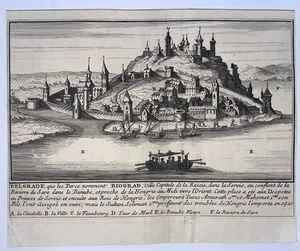 BELGRADE, que les Turcs nomment BIOGRAD, Ville Capitale de la Rascie, dans la Servie, au confluent de la
Riviere de Save dans le Danube, et proche de la Hongrie au Midi vers l'Orient. Cette place a eté aux Despotes
ou Princes de Servie et ensuite aux Rois de Hongrie; les Empereurs Turcs Amurath 2ᵉ et Mahomet 2ᵉ
l'ont assiegé en vain; mais le Sultan Soliman 2ᵉ profitant des troubles de Hongrie l'emporta en 1521
A. la Citadelle B. la Ville. C. le Fauxbourg. D. Tour de E. le Danube Fleuve F. la Riviere de Save
E.